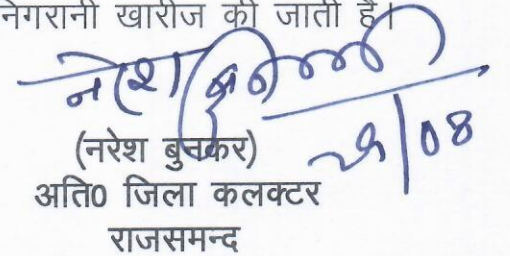 नेगरानी खारीज की जाती है।
नरेश
/08
(नरेश बुनकर)
अति0 जिला कलक्टर
राजसमन्द